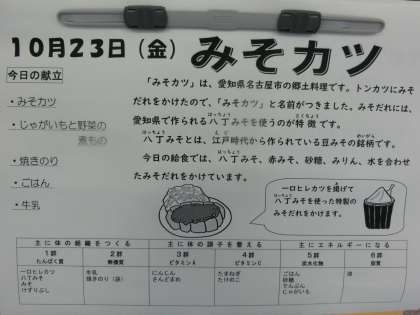 10月23日（金） みそカツ
今日の献立
・みそカツ
・じゃがいもと野菜の
煮もの
・焼きのり
・ごはん
・牛乳
「みそカツ」は、愛知県名古屋市の郷土料理です。トンカツにみそ
だれをかけたので、「みそカツ」と名前がつきました。みそだれには、
愛知県で作られる八丁みそを使うのが特徴です。
八丁みそとは、江戸時代から作られている豆みその銘柄です。
今日の給食では、八丁みそ、赤みそ、砂糖、みりん、水を合わせ
たみそだれをかけています。
一口ヒレカツを揚げて
八丁みそを使った特製の
みそだれをかけます。
主に体の組織をつくる 主に体の調子を整える 主にエネルギーになる
1群 2群 3群 4群 5群 6群
たんぱく質 無機質 ビタミンA ビタミンC 炭水化物 脂質
一口ヒレカツ 牛乳 にんじん たまねぎ ごはん 油
八丁みそ 焼きのり（袋） さんどまめ たけのこ 砂糖
みそ でんぷん
けずりぶし じゃがいも